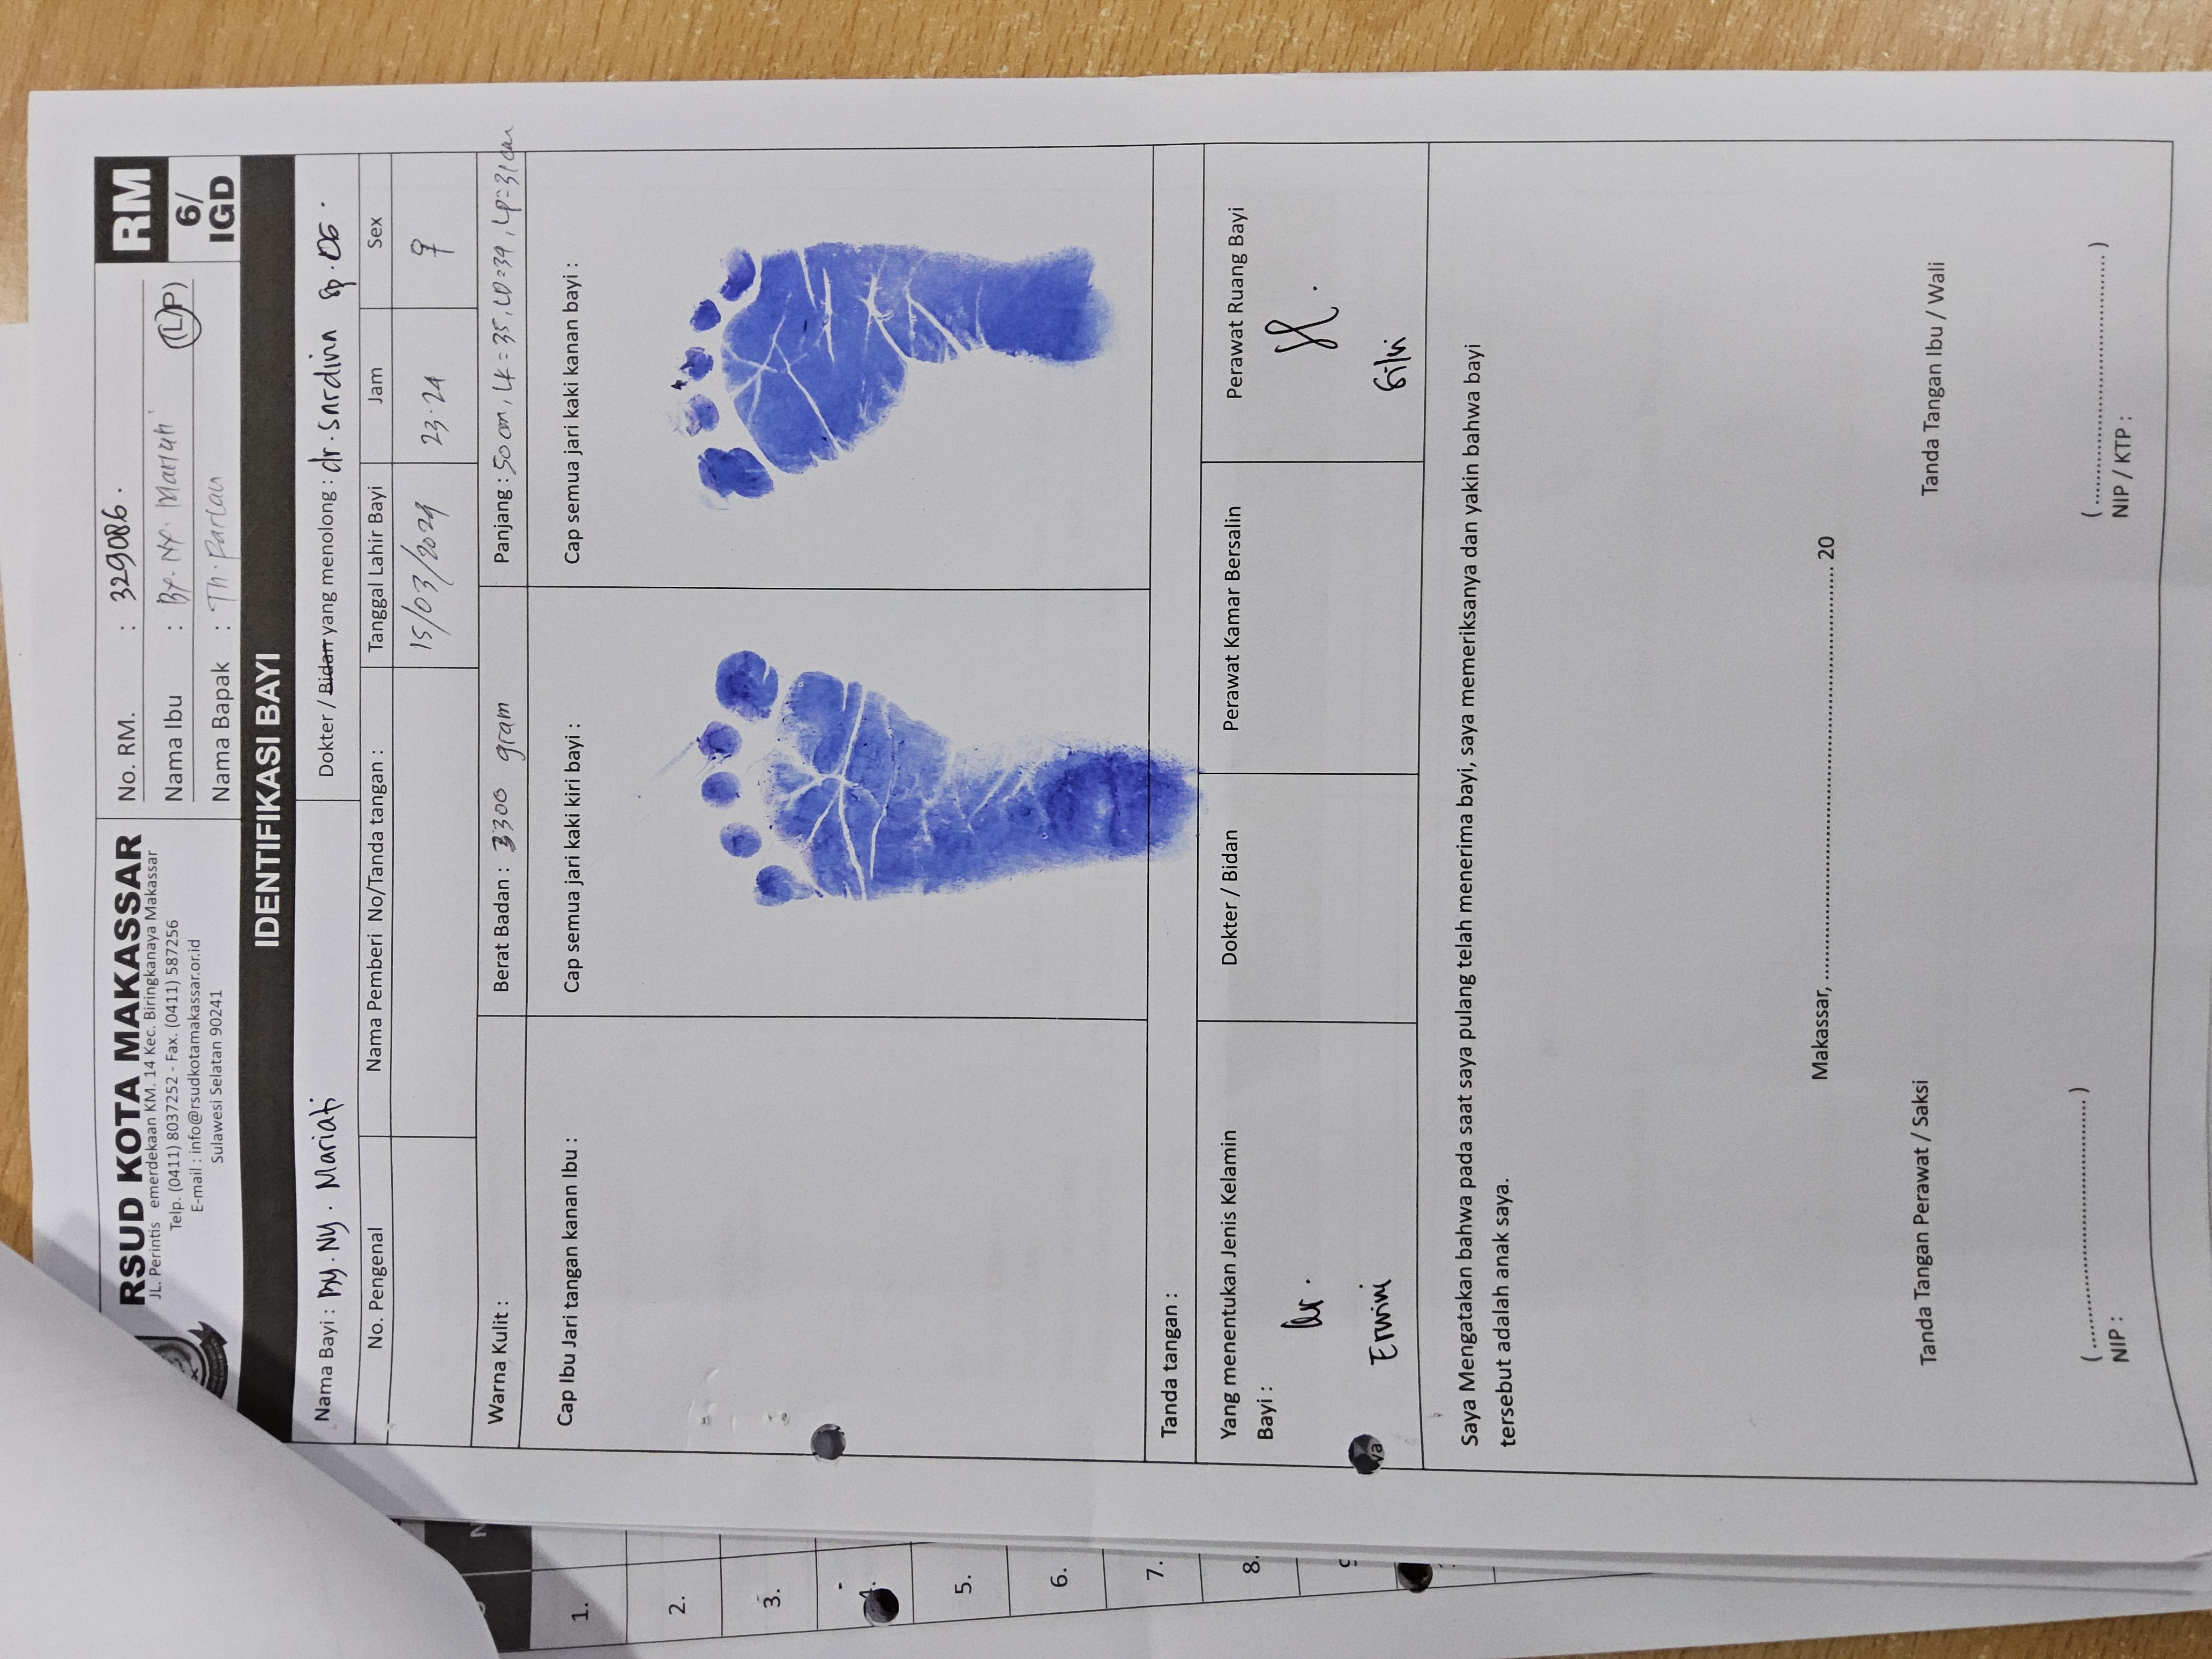 RSUD KOTA MAKASSAR
JL. Perintis emerdekaan KM. 14 Kec. Biringkanaya Makassar
Telp. (0411) 8037252 - Fax. (0411) 587256
E-mail : info@rsudkotamakassar.or.id
Sulawesi Selatan 90241
No. RM. : 329086.
Nama Ibu : By. Ny. Mariati (L/P)
Nama Bapak : Tn. Parlan
RM
6/
IGD
IDENTIFIKASI BAYI
Nama Bayi : By. Ny. Mariati
Dokter / Bidan yang menolong : dr. Sardina Sp.OG.
No. Pengenal
Nama Pemberi No/Tanda tangan :
Tanggal Lahir Bayi
Jam
Sex
15/03/2024
23.24
♀
Warna Kulit :
Berat Badan : 3300 gram
Panjang : 50 cm, LK = 35, LD = 34, LP = 31 cm
Cap Ibu Jari tangan kanan Ibu :
Cap semua jari kaki kiri bayi :
Cap semua jari kaki kanan bayi :
Tanda tangan :
Yang menentukan Jenis Kelamin
Bayi :
Erwini
Dokter / Bidan
Perawat Kamar Bersalin
Perawat Ruang Bayi
Silvi
Saya Mengatakan bahwa pada saat saya pulang telah menerima bayi, saya memeriksanya dan yakin bahwa bayi
tersebut adalah anak saya.
Makassar, ........................................ 20
Tanda Tangan Perawat / Saksi
Tanda Tangan Ibu / Wali
(........................................)
NIP :
(........................................)
NIP / KTP :
1.
2.
3.
4.
5.
6.
7.
8.